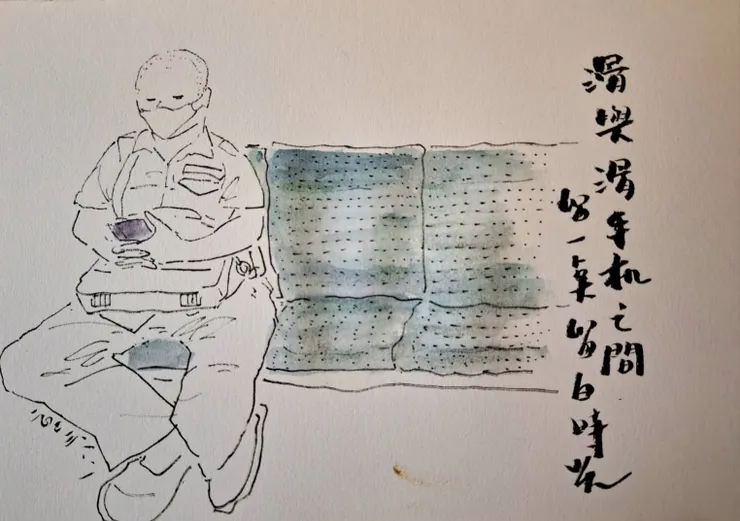 滑與滑手机之間
留一奌留白時光